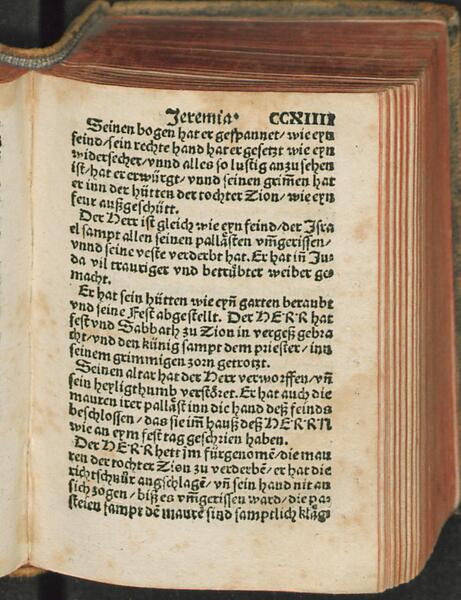 Jeremia. CCXIIII
Seinen bogen hat er gespannet/ wie eyn
feind/ sein rechte hand hat er gesetzt wie eyn
widersecher/ vnnd alles so lustig anzusehen
ist/ hat er erwürgt/ vnnd seinen grim̃en hat
er inn der hütten der tochter Zion/ wie eyn
feur außgeschütt.
Der Herr ist gleich wie eyn feind/ der Isra
el sampt allen seinen pallästen vm̃gerissen/
vnnd seine veste verderbt hat. Er hat iñ Ju-
da vil trauriger vnd betrübter weiber ge-
macht.
Er hat sein hütten wie eyñ garten beraubt
vnd seine Fest abgestellt. Der HERR hat
fest vnd Sabbath zu Zion in vergeß gebra
cht/ vnd den künig sampt dem priester/ inn
seinem grimmigen zorn getrotzt.
Seinen altar hat der Herr verworffen/ vñ
sein heyligthumb verstöret. Er hat auch die
mauren irer palläst inn die hand deß feinds
beschlossen/ das sie im̃ hauß deß HERRN
wie an eym fest tag geschrien haben.
Der HERR hett jm fürgenomē/ die mau
ren der tochter Zion zu verderbē/ er hat die
richtschnůr angschlagē/ vñ sein hand nit an
sich zogen/ biß es vm̃gerissen ward/ die pa-
steien sampt dē maurē sind samptlich kläg-